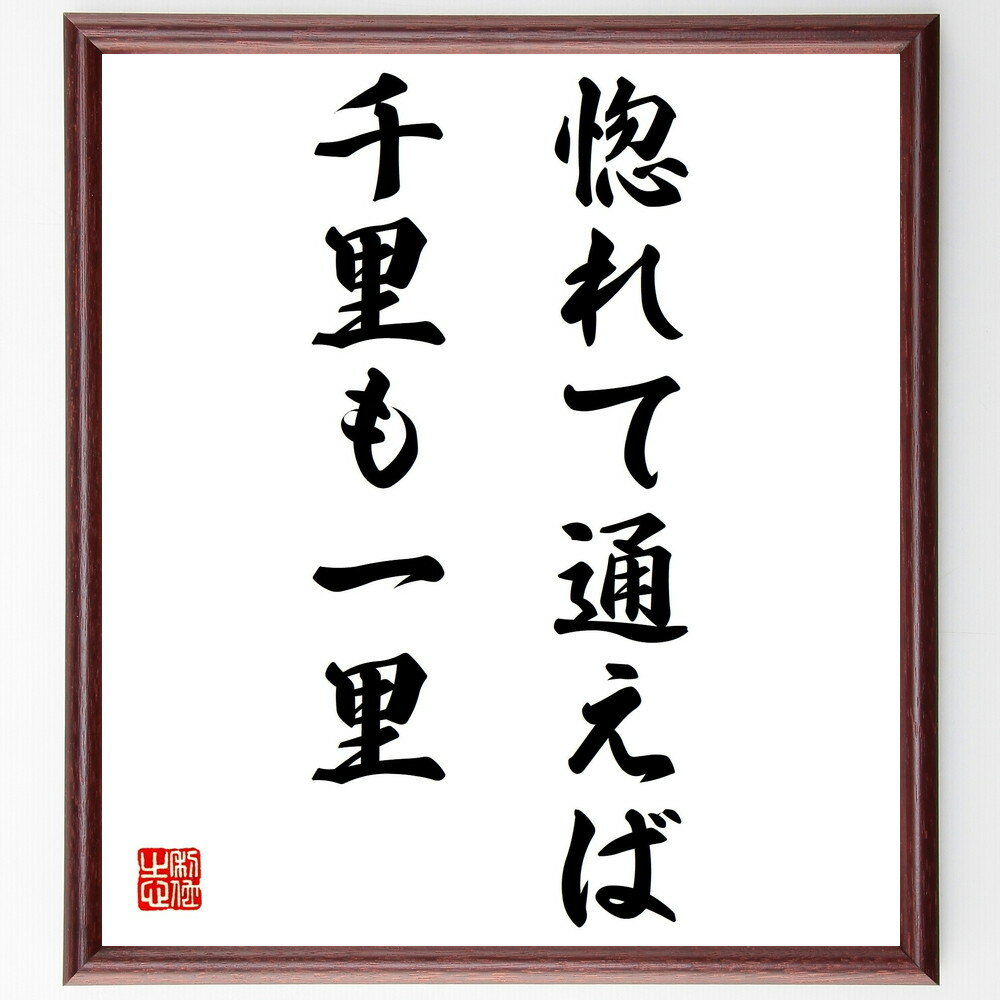 惚れて通えば
千里も一里